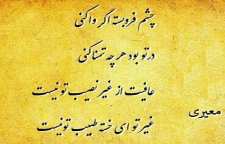 چشم فروبسته اگر وا کنی
در تو بود هر چه تمنا کنی
عافیت از غیر نصیب تو نیست
غیر تو ای خسته طبیب تو نیست
معیری